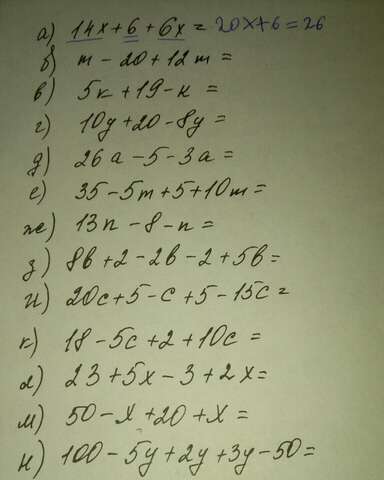 а) 14x + 6 + 6x = 20x+6 = 26
б) m - 20 + 12m =
в) 5к + 19 - к =
г) 10y + 20 - 8y =
д) 26a - 5 - 3a =
е) 35 - 5m + 5 + 10m =
ж) 13n - 8 - n =
з) 8b + 2 - 2b - 2 + 5b =
и) 20c + 5 - c + 5 - 15c =
к) 18 - 5c + 2 + 10c =
л) 23 + 5x - 3 + 2x =
м) 50 - x + 20 + x =
н) 100 - 5y + 2y + 3y - 50 =